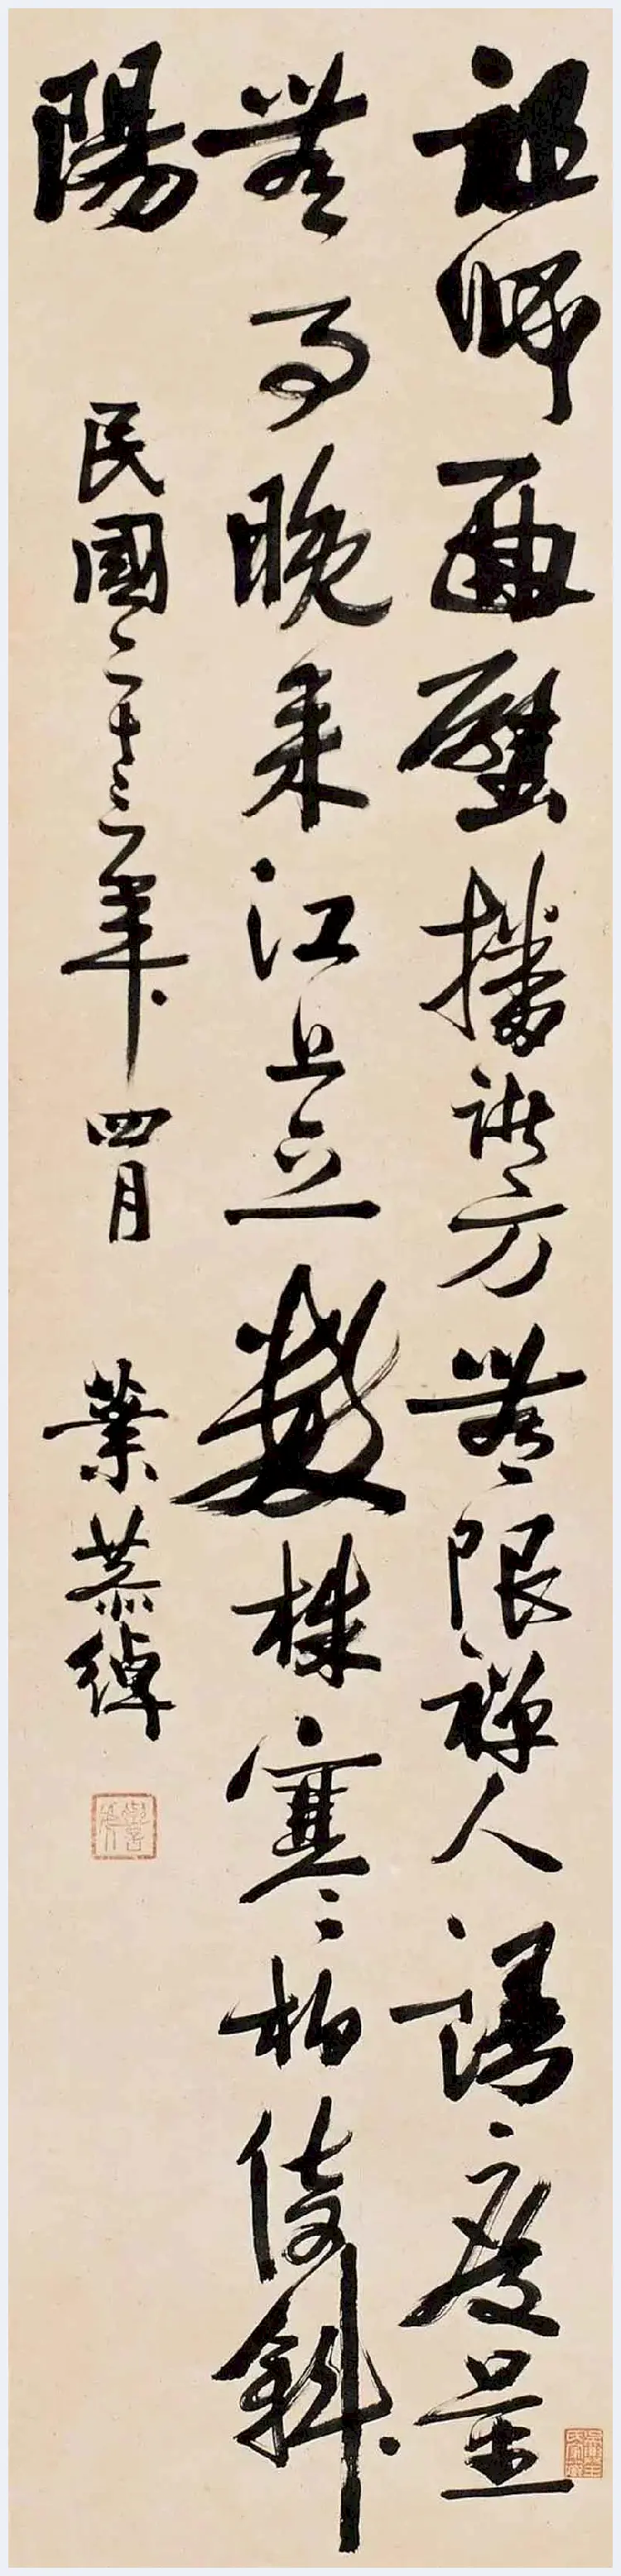 祖師面壁播諸方無限禪人謗度量
無事晚來江上立數株寒柏倚斜
陽
民國二十三年四月
葉恭綽